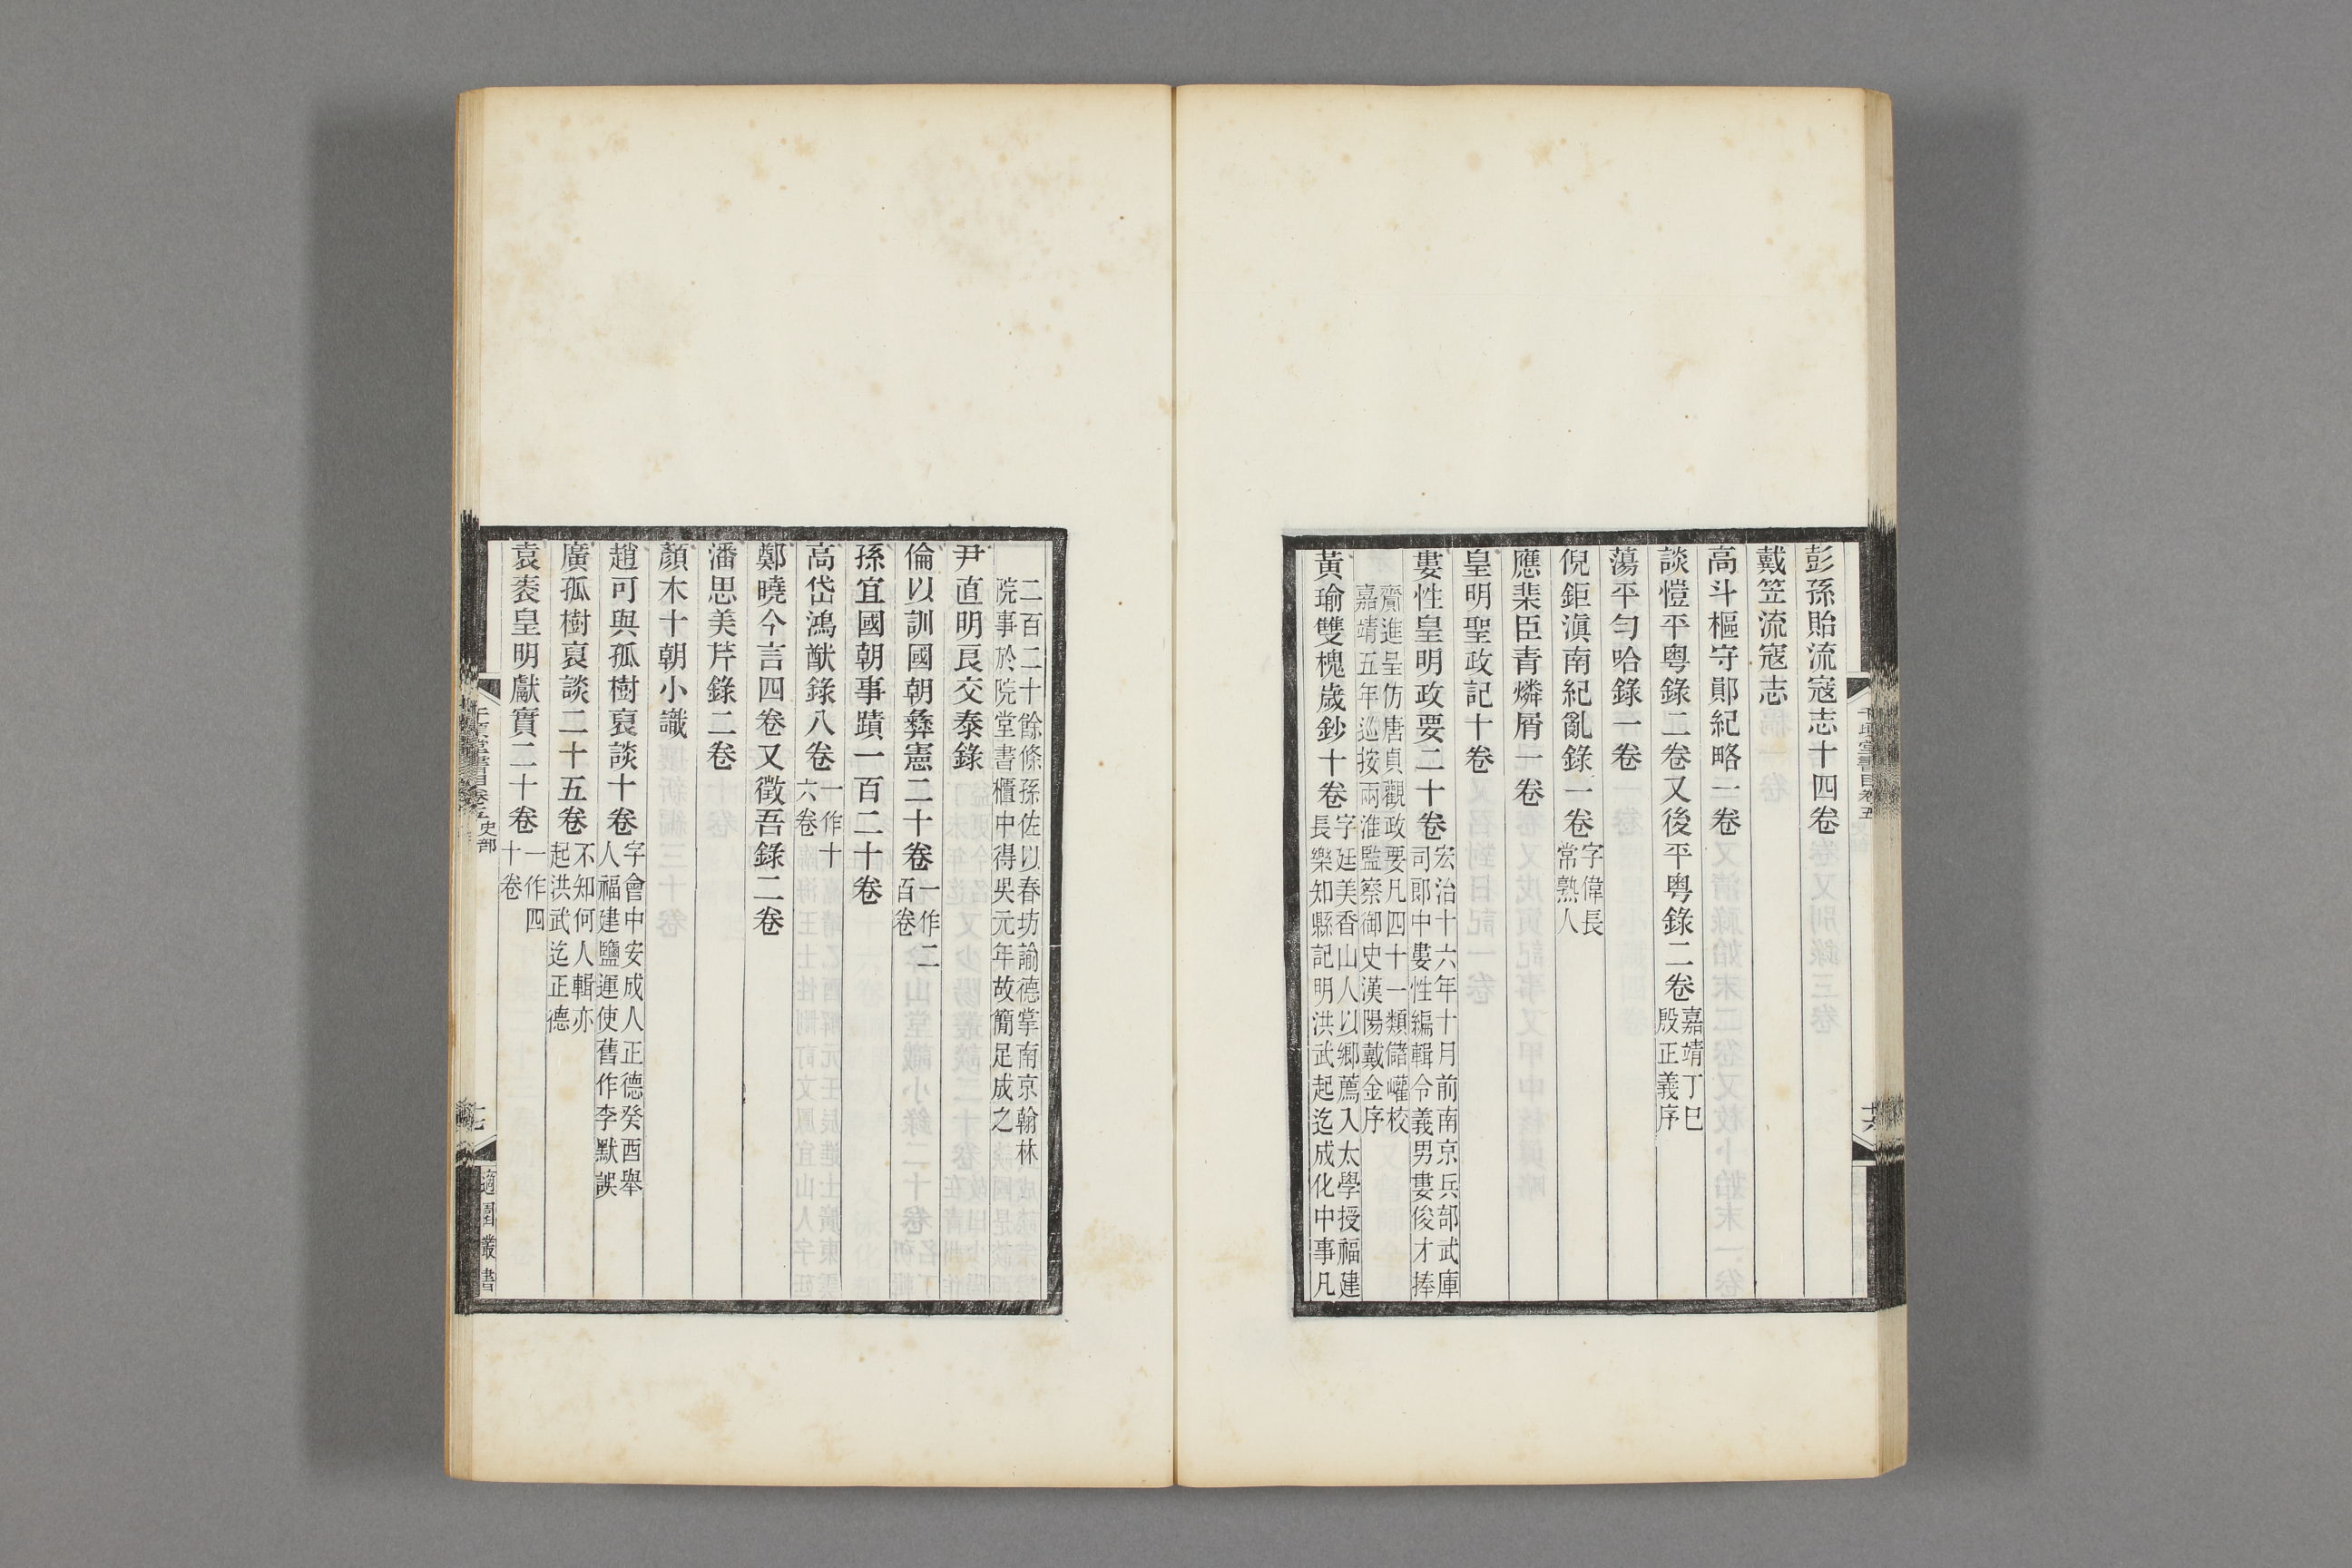 彭孫貽流寇志十四卷
戴笠流寇志
高斗樞守鄖紀略一卷
談愷平粵錄二卷又後平粵錄二卷嘉靖丁巳殷正義序
蕩平勻哈錄一卷
倪鉅滇南紀亂錄一卷字偉長常熟人
應棐臣青燐屑一卷
皇明聖政記十卷
婁性皇明政要二十卷宏治十六年十月前南京兵部武庫司郎中婁性編輯令義男婁俊才捧
齎進呈仿唐貞觀政要凡四十一類儲巏校嘉靖五年巡按兩淮監察御史漢陽戴金序
黃瑜雙槐歲鈔十卷字廷美香山人以鄉薦入太學授福建長樂知縣記明洪武起迄成化中事凡
二百二十餘條孫佐以春坊諭德掌南京翰林院事於院堂書櫃中得吳元年故簡足成之
尹直明良交泰錄
倫以訓國朝彝憲二十卷一作二百卷
孫宜國朝事蹟一百二十卷
高岱鴻猷錄八卷一作十六卷
鄭曉今言四卷又徵吾錄二卷
潘思美芹錄二卷
顏木十朝小識
趙可與孤樹裒談十卷字會中安成人正德癸酉舉人福建鹽運使舊作李默誤
廣孤樹裒談二十五卷不知何人輯亦起洪武迄正德
袁袠皇明獻實二十卷一作四十卷
史部
適園叢書